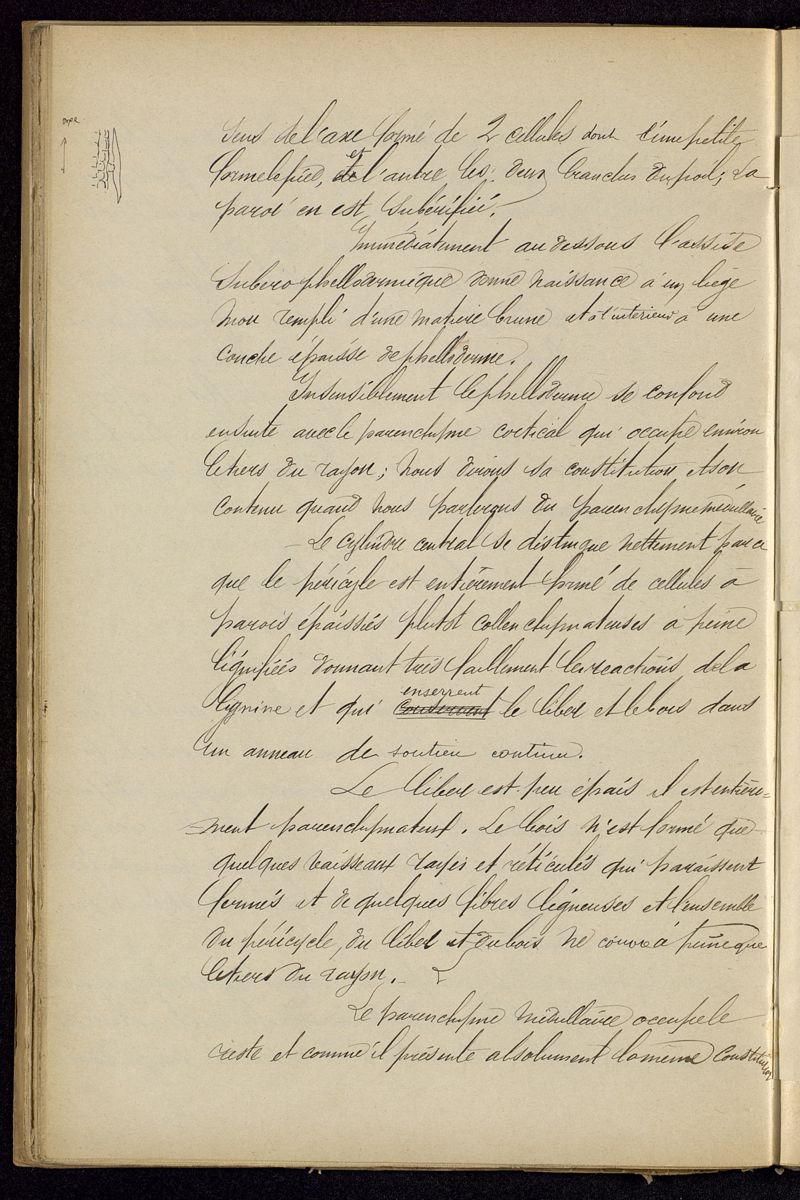 sens de l'axe formé de 2 cellules dont l'une petite
forme le pied, et l'autre les deux branches du poil; La
paroi en est subérifiée.
Immédiatement au dessous l'assise
subéro phellodermique donne naissance à un liège
mou rempli d'une matière brune et à l'intérieur à une
couche épaisse de phelloderme.
Insensiblement le phelloderme se confond
ensuite avec le parenchyme cortical qui occupe environ
le tiers du rayon; nous dirons sa constitution et son
contenu quand nous parlerons du parenchyme médullaire
— Le cylindre central se distingue nettement parce
que le péricycle est entièrement formé de cellules à
parois épaissies plutôt collenchymateuses à peine
lignifiées donnant très faiblement les réactions de la
lignine et qui enserrent le liber et le bois dans
un anneau de soutien continu.
Le liber est peu épais il est entière=
=ment parenchymateux. Le bois n'est formé que
quelques vaisseaux rayés et réticulés qui paraissent
fermés et de quelques fibres ligneuses et l'ensemble
du péricycle, du liber et du bois ne couvre à peine que
le tiers du rayon. —
Le parenchyme médullaire occupe le
reste et comme il présente absolument la même constitution